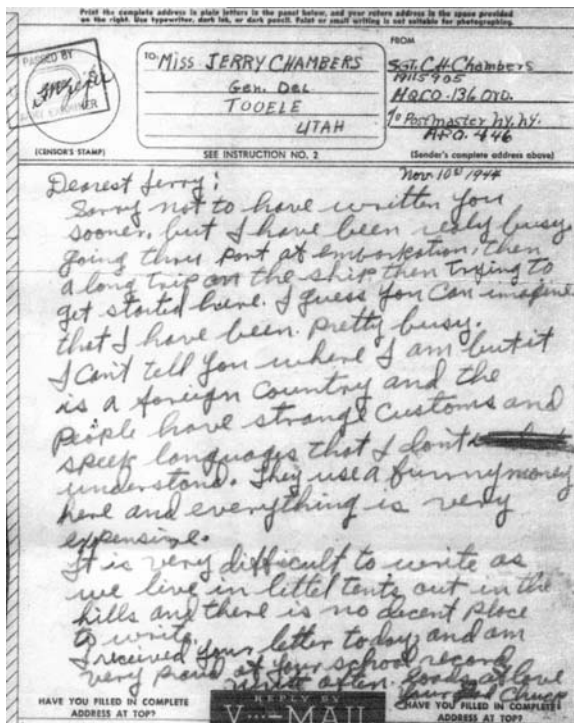 Print the complete address in plain letters in the panel below, and your return address in the space provided
on the right. Use typewriter, dark ink, or dark pencil. Faint or small writing is not suitable for photographing.
PASSED BY
ARMY EXAMINER
(CENSOR'S STAMP)
TO: MISS JERRY CHAMBERS
Gen. Del
TOOELE
UTAH
SEE INSTRUCTION NO. 2
FROM
Sgt. C.H. Chambers
19115905
HQCO-136 ORD.
% Postmaster N.Y. N.Y.
A.P.O. 446
(Sender's complete address above)
Nov. 10th 1944
Dearest Jerry:
Sorry not to have written you
sooner, but I have been realy busy.
going thru port at embarkation, then
a long trip on the ship then trying to
get started here. I guess you can imagine
that I have been pretty busy.
I can't tell you where I am but it
is a foreign country and the
people have strange customs and
speek languages that I dont
understand. They use a funny money
here and everything is very
expensive.
It is very difficult to write as
we live in littel tents out in the
hills and there is no decent place
to write.
I received your letter today, and am
very proud of your school record
write often. Loads of love
Your Dad Chuck
HAVE YOU FILLED IN COMPLETE
ADDRESS AT TOP?
REPLY BY
V···—MAIL
HAVE YOU FILLED IN COMPLETE
ADDRESS AT TOP?